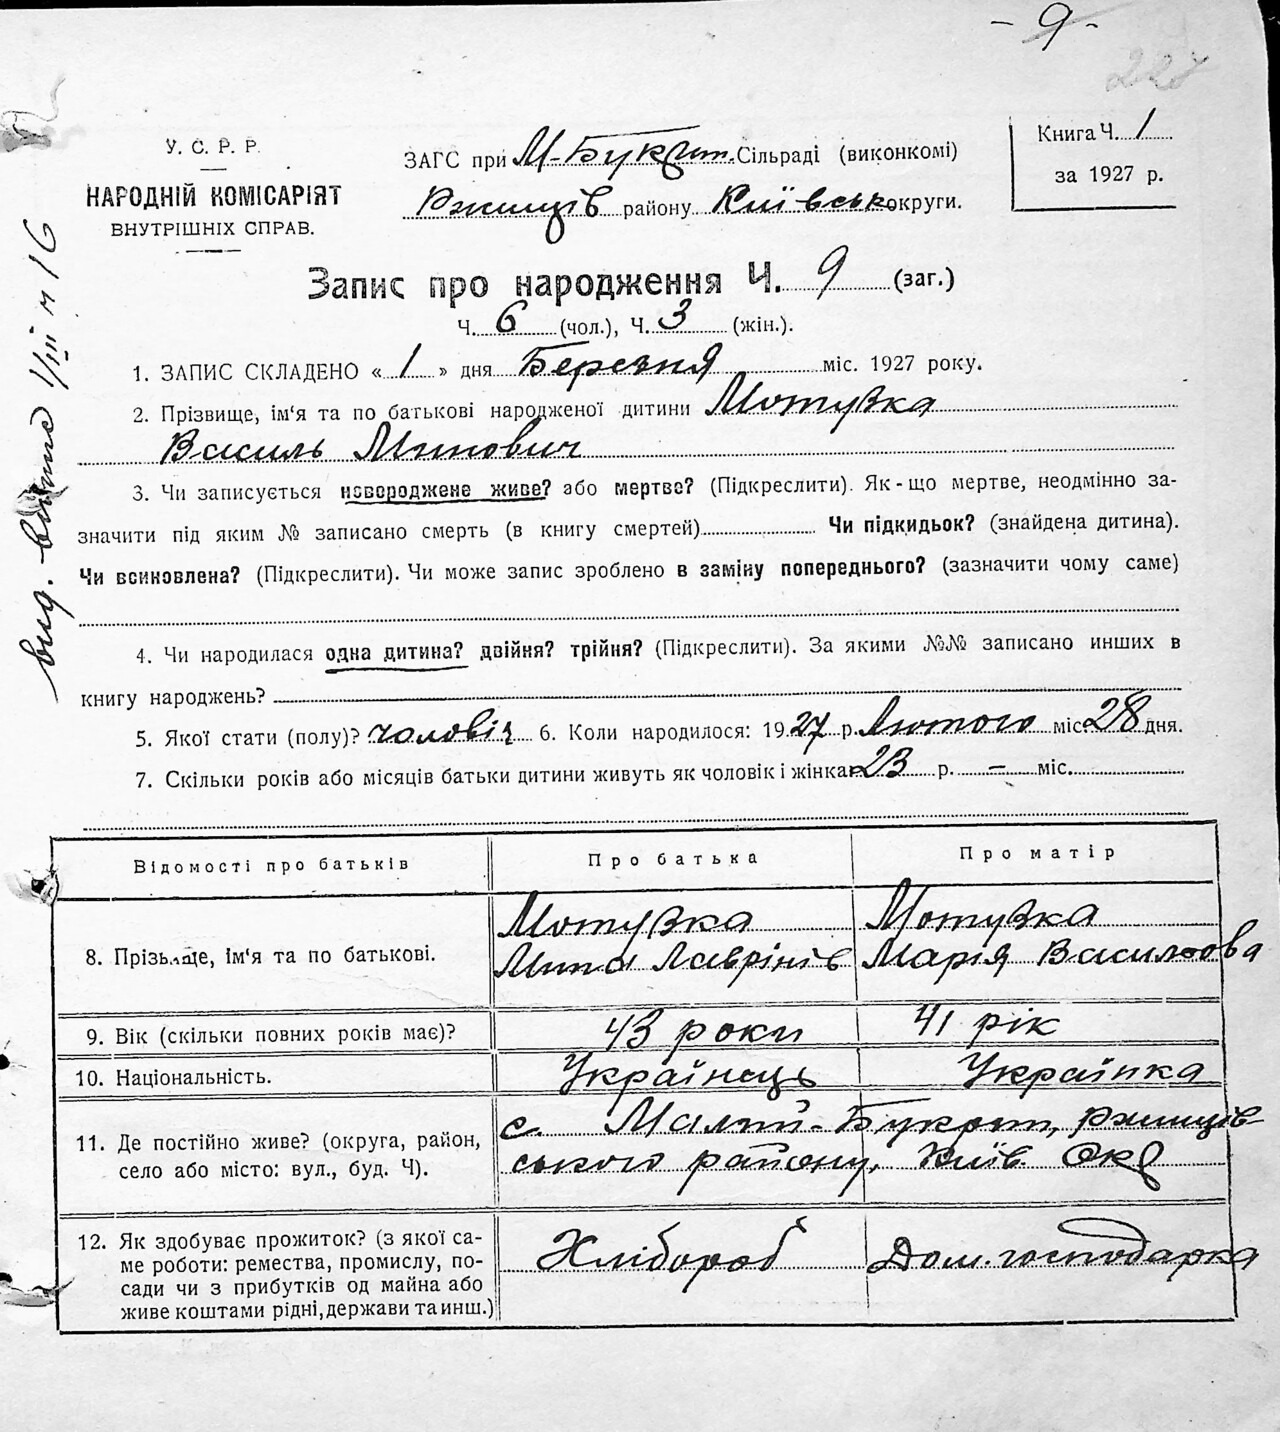 - 9 -
227
У. С. Р. Р.
НАРОДНІЙ КОМІСАРІЯТ
ВНУТРІШНІХ СПРАВ.
ЗАГС при М-Букрин. Сільраді (виконкомі)
Ржищів району Київськ округи.
Книга Ч. 1
за 1927 р.
вид. витяг 1/III н 16
Запис про народження Ч. 9 (заг.)
Ч. 6 (чол.), Ч. 3 (жін.).
1. ЗАПИС СКЛАДЕНО « 1 » дня Березня міс. 1927 року.
2. Прізвище, ім‘я та по батькові народженої дитини Мотузка
Василь Минович
3. Чи записується новороджене живе? або мертве? (Підкреслити). Як-що мертве, неодмінно за-
значити під яким № записано смерть (в книгу смертей) Чи підкидьок? (знайдена дитина).
Чи всиновлена? (Підкреслити). Чи може запис зроблено в заміну попереднього? (зазначити чому саме)
4. Чи народилася одна дитина? двійня? трійня? (Підкреслити). За якими №№ записано инших в
книгу народжень?
5. Якої стати (полу)? чоловіч 6. Коли народилося: 1927 р. Лютого міс. 28 дня.
7. Скільки років або місяців батьки дитини живуть як чоловік і жінка 23 р. – міс.
Відомості про батьків Про батька Про матір
8. Прізвище, ім‘я та по батькові.
Мотузка
Мина Лаврінів
Мотузка
Марія Василова
9. Вік (скільки повних років має)? 43 роки 41 рік
10. Національність. Українець Українка
11. Де постійно живе? (округа, район,
село або місто: вул., буд. Ч).
с. Малий-Букрин, Ржищів-
ського району, Київ. Окр
12. Як здобуває прожиток? (з якої са-
ме роботи: ремества, промислу, по-
сади чи з прибутків од майна або
живе коштами рідні, держави та инш.)
Хлібороб Дом. господарка